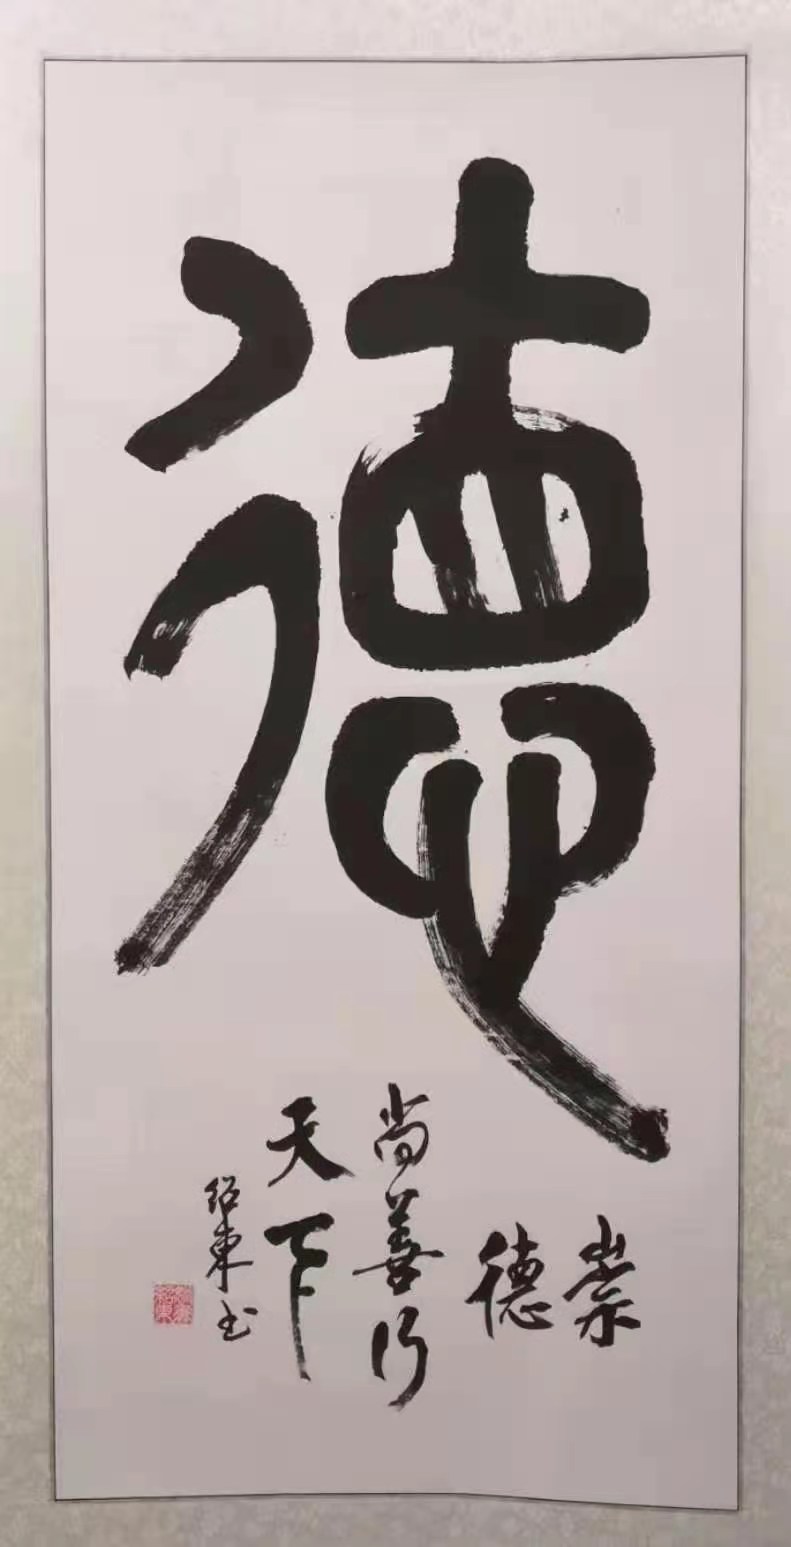 德
崇
德
尚善行
天下
绍東书